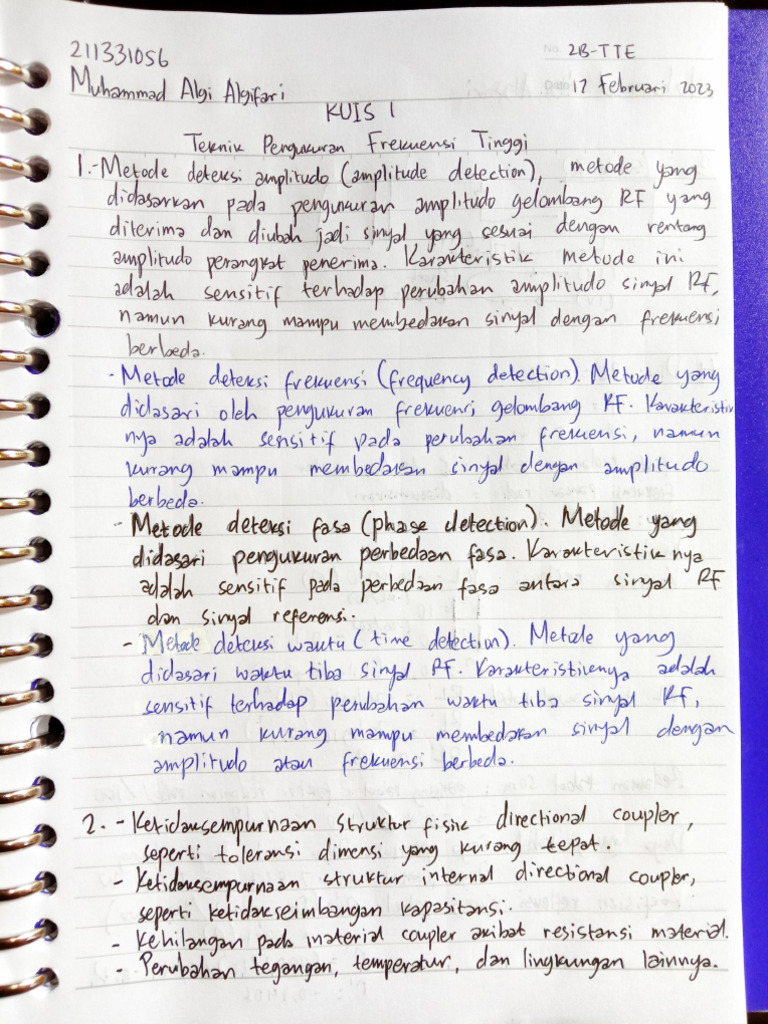 211331056
2B-TTE
Muhammad Algi Algifari
17 Februari 2023
KUIS 1
Teknik Pengukuran Frekuensi Tinggi
1.- Metode deteksi amplitudo (amplitude detection), metode yang
didasarkan pada pengukuran amplitudo gelombang RF yang
diterima dan diubah jadi sinyal yang sesuai dengan rentang
amplitudo perangkat penerima. Karakteristik metode ini
adalah sensitif terhadap perubahan amplitudo sinyal RF,
namun kurang mampu membedakan sinyal dengan frekuensi
berbeda.
- Metode deteksi frekuensi (frequency detection). Metode yang
didasari oleh pengukuran frekuensi gelombang RF. Karakteristik
nya adalah sensitif pada perubahan frekuensi, namun
kurang mampu membedakan sinyal dengan amplitudo
berbeda.
- Metode deteksi fasa (phase detection). Metode yang
didasari pengukuran perbedaan fasa. Karakteristiknya
adalah sensitif pada perbedaan fasa antara sinyal RF
dan sinyal referensi.
- Metode deteksi waktu (time detection). Metode yang
didasari waktu tiba sinyal RF. Karakteristiknya adalah
sensitif terhadap perubahan waktu tiba sinyal RF,
namun kurang mampu membedakan sinyal dengan
amplitudo atau frekuensi berbeda.
2. - Ketidaksempurnaan struktur fisik directional coupler,
seperti toleransi dimensi yang kurang tepat.
- Ketidaksempurnaan struktur internal directional coupler,
seperti ketidakseimbangan kapasitansi.
- Kehilangan pada material coupler akibat resistansi material.
- Perubahan tegangan, temperatur, dan lingkungan lainnya.